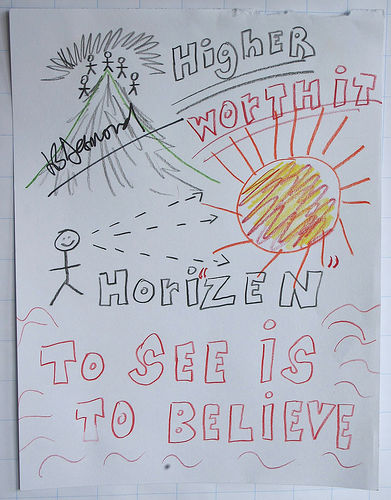 HigHER
WORTH iT
HBDesmond
Hori"ZEN"
To SEE iS
To BELiEVE